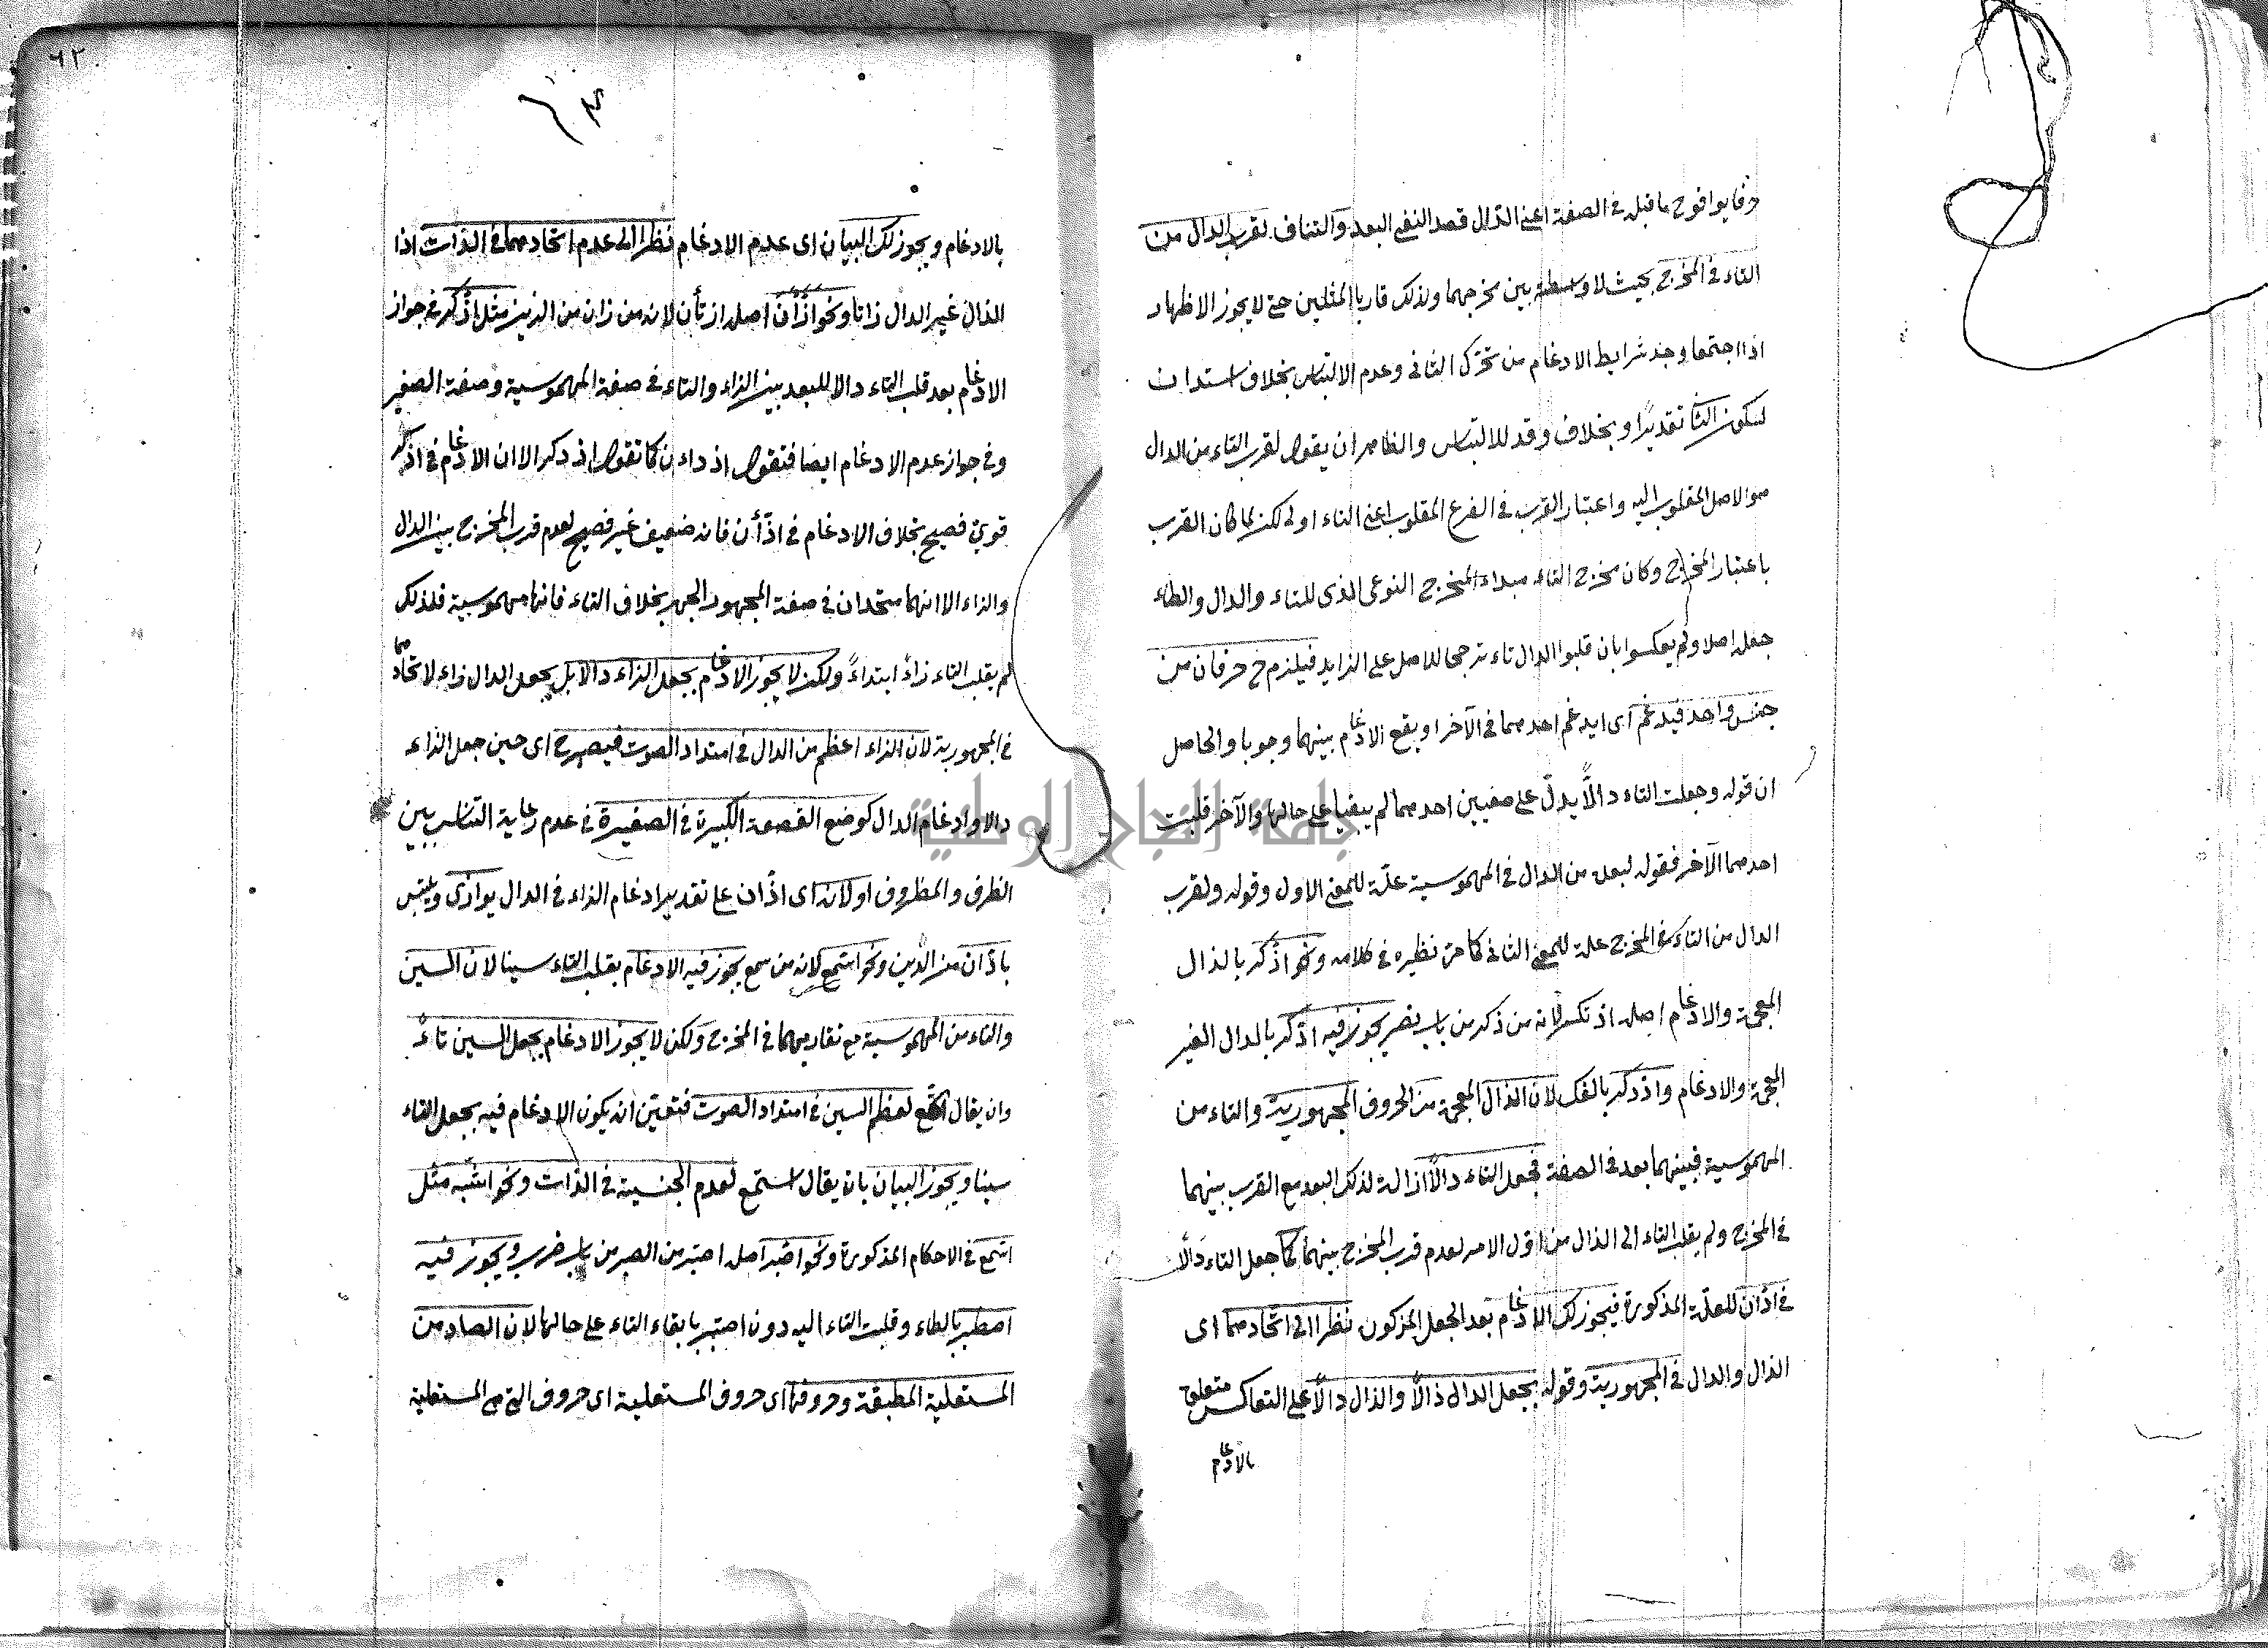 حرفا يوافق ح ما قبله في الصفة اعني الدال قصد النفي البعد والتنافر لقرب الدال من
التاء في المخرج بحيث لا واسطة بين مخرجهما ولذلك قاربا المثلين حتى لا يجوز الاظهار
اذا اجتمعا وجد شرايط الادغام من تحرك الثاني وعدم الالتباس بخلاف استدان
لسكون الثا تقديرا وبخلاف وتد للالتباس والظاهر ان يقول لقرب التاء من الدال
هو الاصل المقلوب اليه واعتبار القرب في الفرع المقلوب اعني التاء اولى لكن لما كان القرب
باعتبار المخرج وكان مخرج التاء مبداء المخرج النوعي الذي للتاء والدال والطاء
جعله اصلا ولم يعكسوا بان قلبوا الدال تاء ترجيحا للاصل على الزايد فيلزم ح حرفان من
جنس واحد فيدغم اى ايدغم احدهما في الآخر او يقع الادغام بينهما وجوبا والحاصل
ان قوله وجعلت التاء دالا يدل على معنيين احدهما لم يبقيا على حالها والآخر قلبت
احدهما الآخر فقوله لبعد من الدال في المهموسية علة للمعنى الاول وقوله ولقرب
الدال من التاء في المخرج علة للمعنى الثاني كما مر نظيره في كلامه ونحو اذكر بالذال
المعجمة والادغام اصله اذتكر لانه من ذكر من باب نصر يجوز فيه ادكر بالدال الغير
المعجمة والادغام واذدكر بالفك لان الذال المعجمة من الحروف المجهورية والتاء من
المهموسية فبينهما بعد في الصفة فجعل التاء دالا ازالة لذلك البعد مع القرب بينهما
في المخرج ولم يقلب التاء الى الذال من اول الامر لعدم قرب المخرج بينهما كما جعل التاء دالا
في ادان للعلة المذكورة فيجوز لك الادغام بعد الجعل المذكور نظرا الى اتحادهما اى
الذال والدال في المجهورية وقوله بجعل الدال ذالا والذال دالا على التعاكس متعلق
بالادغام
٦٢
بالادغام ويجوز لك البيان اى عدم الادغام نظرا الى عدم اتحادهما في الذات اذا
الذال غير الدال ذاتا ونحو ازان اصله ازتأن لانه من زان من الزين مثل اذكر في جواز
الادغام بعد قلب التاء دالا للبعد بين الزاء والتاء في صفة المهموسية وصفة الصفير
وفي جواز عدم الادغام ايضا فتقول ازداءن كما تقول اذدكر الا ان الادغام في اذكر
قوي فصيح بخلاف الادغام في ازأن فانه ضعيف غير فصيح لعدم قرب المخرج بين الدال
والزاء الا انهما متحدان في صفة المجهور الجهر بخلاف التاء فانها مهموسية فلذلك
لم يقلب التاء زاء ابتداء ولكن لا يجوز الادغام بجعل الزاء دالا بل يجعل الدال زاء لاتحادهما
في المجهورية لان الزاء اعظم من الدال في امتداد الصوت فيصير ح اى حين جعل الزاء
دالا وادغام الدال كوضع القصعة الكبيرة في الصغيرة في عدم رعاية التناسب بين
الظرف والمظروف او لانه اى ادان على تقدير ادغام الزاء في الدال يوازي ويلتبس
بادان من الدين ونحو استمع لانه من سمع يجوز فيه الادغام بقلب التاء سينا لان السين
والتاء من المهموسية مع تقاربهما في المخرج ولكن لا يجوز الادغام بجعل السين تاء
وان يقال اتمع لعظم السين في امتداد الصوت فتعين انه يكون الادغام فيه بجعل التاء
سينا ويجوز البيان بان يقال استمع لعدم الجنسية في الذات ونحو اشبه مثل
اسمع في الاحكام المذكورة ونحو اصبر اصله اصتبر من الصبر من باب ضرب ويجوز فيه
اصطبر بالطاء وقلبت التاء اليه دون اصتبر بابقاء التاء على حالها لان الصاد من
المستعلية المطبقة وحروفها اى حروف المستعلية اى حروف التي هي المستعلية
جامعة النجاح الوطنية